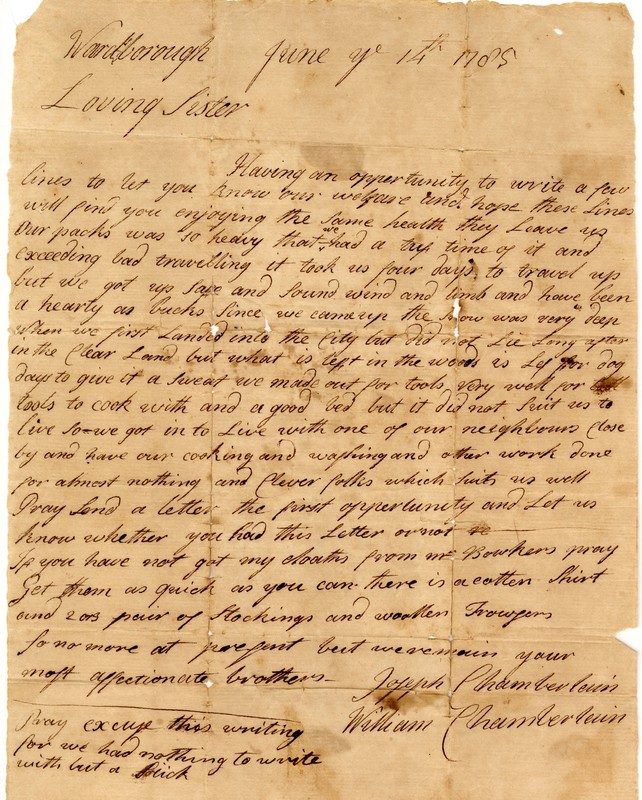 Wardsborough June ye 14th 1785
Loving Sister
Having an opportunity to write a few
lines to let you know our welfare and hope these Lines
will find you enjoying the same health they Leave us
Our packs was so heavy that we had a try time of it and
exceeding bad travelling it took us four days to travel up
but we got up safe and sound wind and limb and have been
a hearty as bucks since we came up the snow was very deep
when we first Landed into the City but did not Lie Long after
in the Clear Land but what is left in the woods is Left for dog
days to give it a Sweat we made out for tools very well for
tools to cook with and a good bed but it did not suit us to
live so we got in to Live with one of our neighbours Close
by and have our cooking and washing and other work done
for almost nothing and Clever folks which suits us well
Pray Send a letter the first opportunity and Let us
know whether you had this Letter or not
If you have not got my cloaths from mr Bowkers pray
Get them as quick as you can there is a cotten Shirt
and 2 or 3 pair of Stockings and woollen Trowsers
So no more at present but we remain your
most affectionate brothers Joseph Chamberlain
William Chamberlain
Pray excuse this writing
for we had nothing to write
with but a Stick